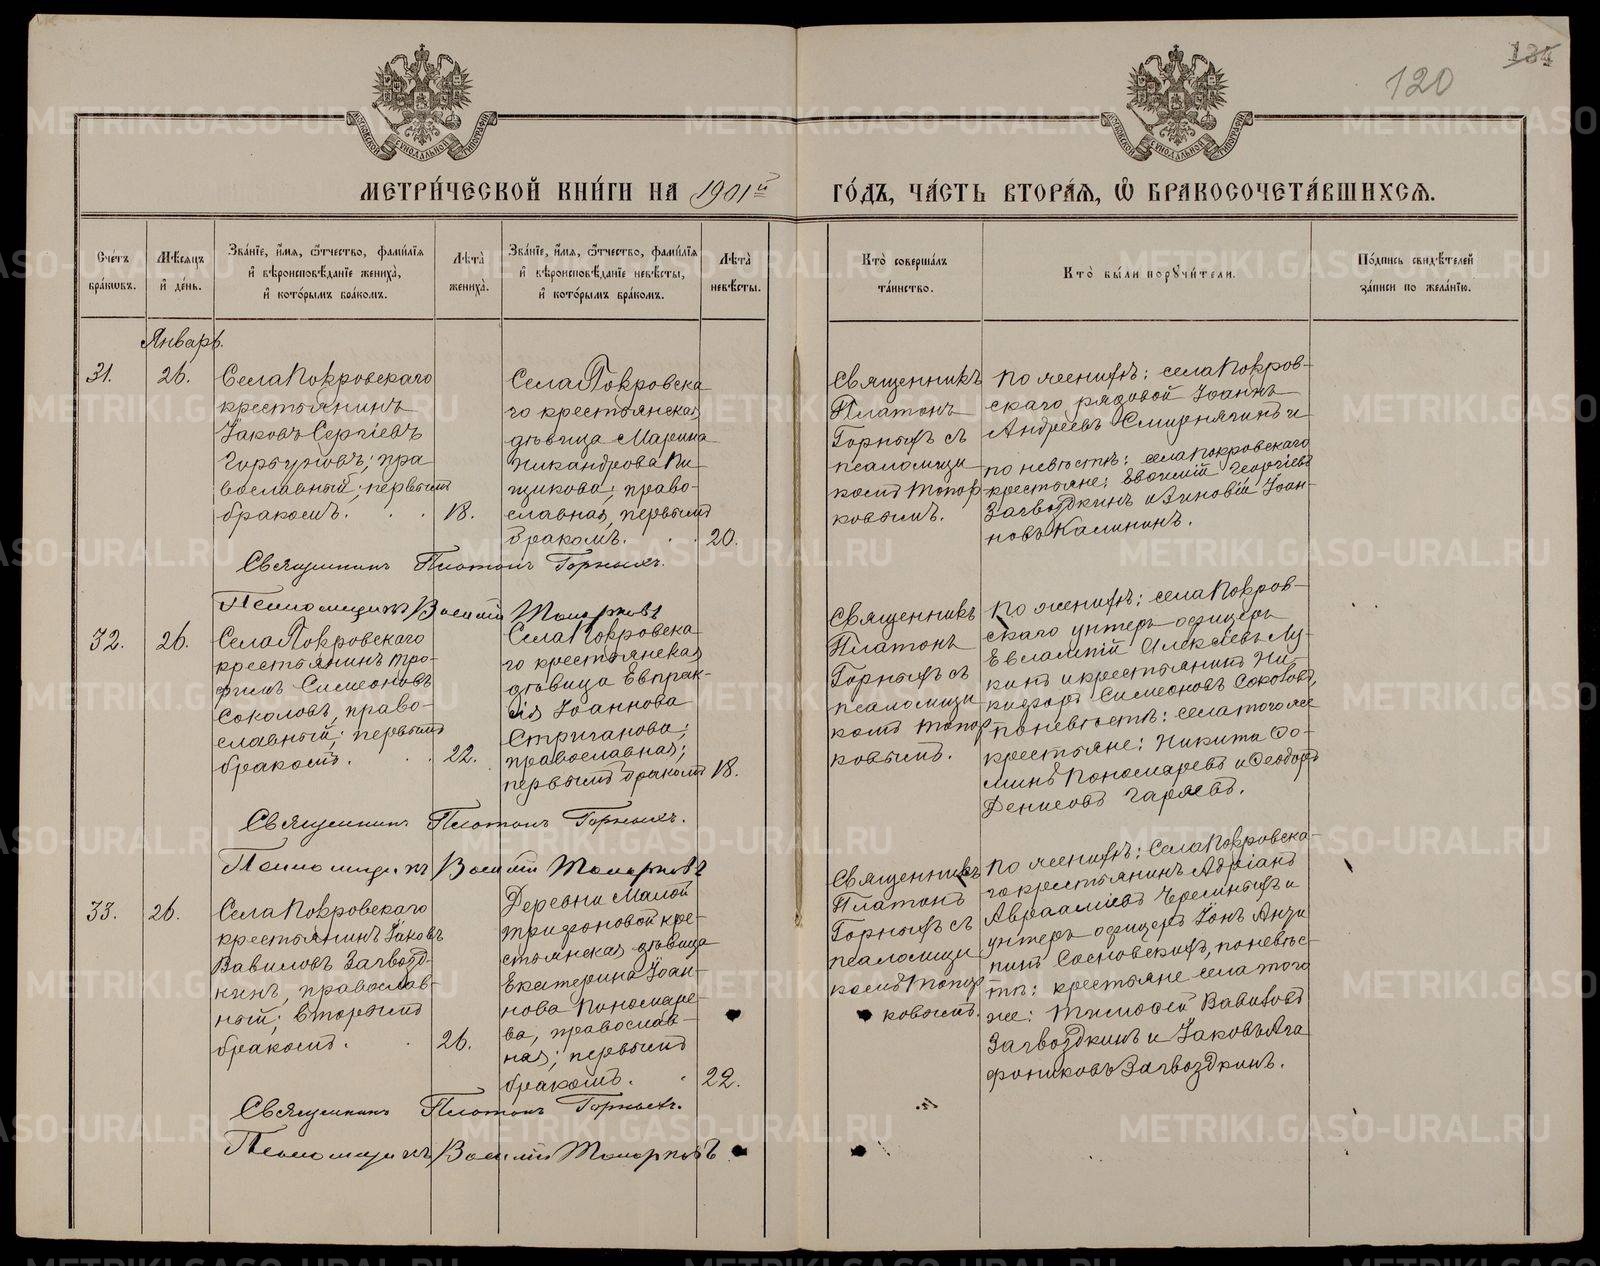 120
134
МОСКОВСКОЙ СѴНОДАЛЬНОЙ ТИПОГРАФІИ
МОСКОВСКОЙ СѴНОДАЛЬНОЙ ТИПОГРАФІИ
МЕТРИ́ЧЕСКОЙ КНИ́ГИ НА 1901й
ГО́ДЪ, ЧА́СТЬ ВТОРА́Ѧ, Ѡ҆ БРАКОСОЧЕТА́ВШИХСѦ.
Сче́тъ бра́кѡвъ.
Мѣ́сяцъ и҆ де́нь.
Зва́нїе, и҆́мѧ, ѻ҆́тчество, фами́лїѧ и҆ вѣроисповѣ́данїе жениха̀, и҆ кото́рымъ бра́комъ.
Лѣ́та жениха̀.
Зва́нїе, и҆́мѧ, ѻ҆́тчество, фами́лїѧ и҆ вѣроисповѣ́данїе невѣ́сты, и҆ кото́рымъ бра́комъ.
Лѣ́та невѣ́сты.
Кто̀ соверша́лъ та́инство.
Кто̀ бы́ли порꙋчи́тели.
По́дпись свидѣ́телей за́писи по жела́нїю.
Январь.
31.
26.
Села Покровскаго
крестьянинъ
Іаковъ Сергіевъ
Горбуновъ; пра
вославный; первымъ
бракомъ.
18.
Села Покровска
го крестьянская
дѣвица Марина
Никандрова Пи
щикова; право-
славная, первымъ
бракомъ.
20.
Священникъ
Платонъ
Горныхъ съ
псаломщи
комъ Топор
ковымъ.
По женихѣ: села Покров-
скаго рядовой Іоаннъ
Андреевъ Смирнягинъ и
по невѣстѣ: села Покровскаго
крестьяне: Евфимій Георгіевъ
Загвоздкинъ и Зиновій Іоан-
новъ Калининъ.
Священникъ Платонъ Горныхъ.
Псаломщикъ Василій Топорковъ
32.
26.
Села Покровскаго
крестьянинъ Тро-
фимъ Симеоновъ
Соколовъ, право-
славный; первымъ
бракомъ.
22.
Села Покровска-
го крестьянская
дѣвица Евпрак-
сія Іоаннова
Стриганова;
православная;
первымъ бракомъ
18.
Священникъ
Платонъ
Горныхъ съ
псаломщи
комъ Топор
ковымъ.
По женихѣ: села Покров-
скаго унтеръ офицеръ
Евлампій Алексѣевъ Лу-
кинъ и крестьянинъ Ни-
кифоръ Симеоновъ Соколовъ,
по невѣстѣ: села того же
крестьяне: Никита Фо-
минъ Пономаревъ и Феодоръ
Денисовъ Гаряевъ.
Священникъ Платонъ Горныхъ.
Псаломщикъ Василій Топорковъ
33.
26.
Села Покровскаго
крестьянинъ Іаковъ
Вавиловъ Загвозд-
кинъ, православ-
ный; вторымъ
бракомъ.
26.
Деревни Малой
Трифоновой кре-
стьянская дѣвица
Екатерина Іоан-
нова Пономаре-
ва, православ-
ная; первымъ
бракомъ.
22.
Священникъ
Платонъ
Горныхъ съ
псаломщи
комъ Топор
ковымъ.
По женихѣ: Села Покровска-
го крестьянинъ Адріанъ
Авраамовъ Черемныхъ и
унтеръ офицеръ Іонъ Анти
пинъ Сосновскихъ, по невѣс-
тѣ: крестьяне села того
же: Тимофей Вавиловъ
Загвоздкинъ и Іаковъ Ага
фониковъ Загвоздкинъ.
Священникъ Платонъ Горныхъ.
Псаломщикъ Василій Топорковъ
METRIKI.GASO-URAL.RU